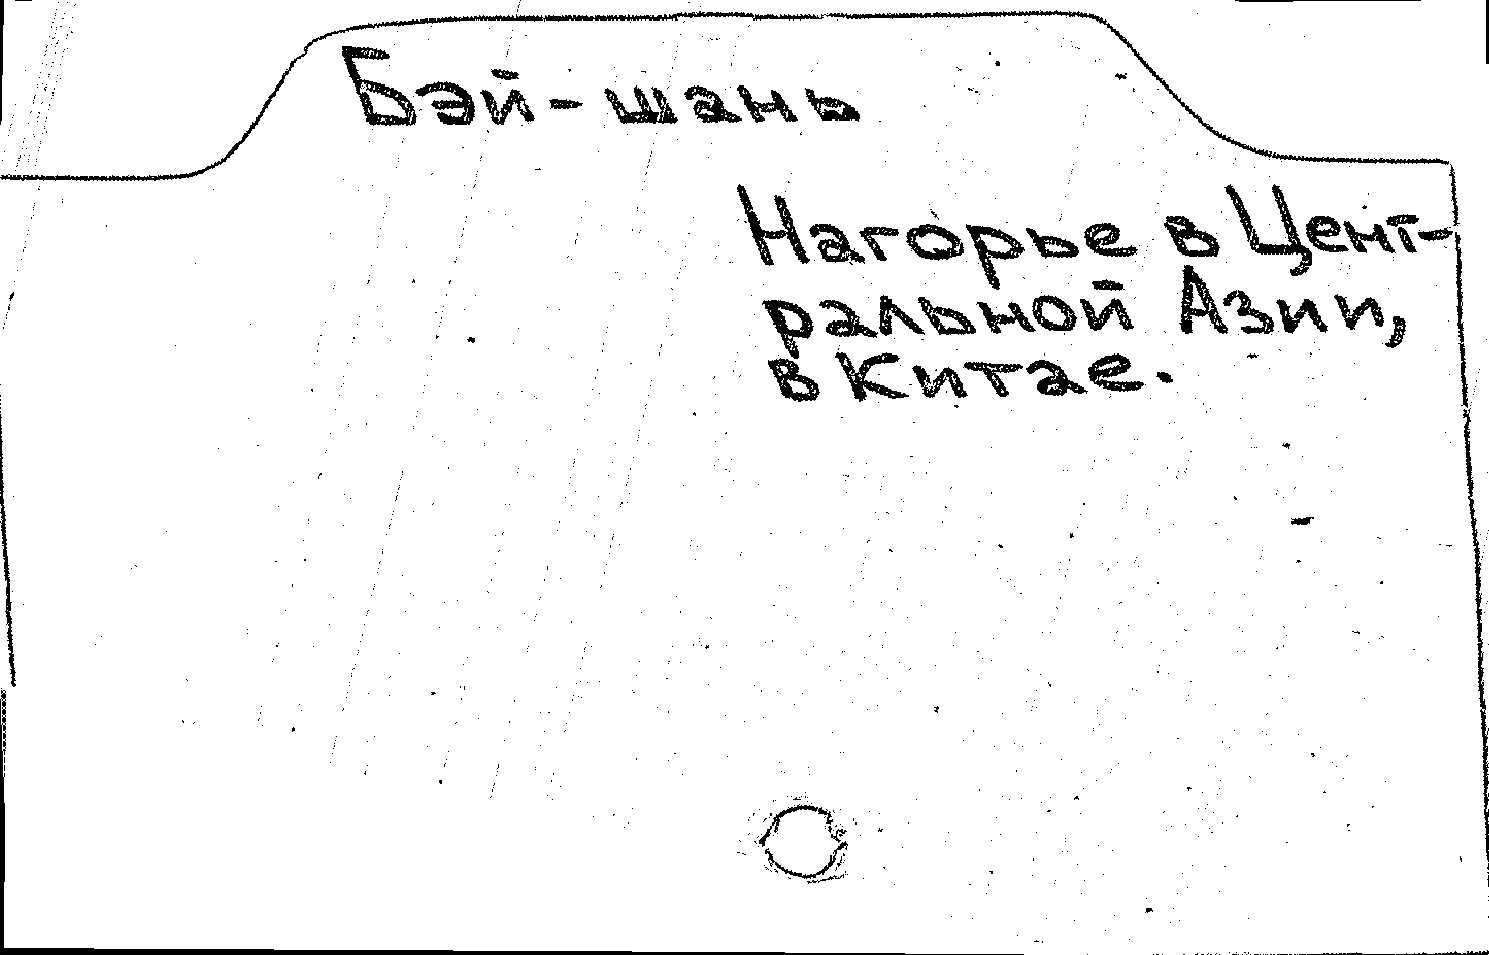 Бэй-шань
Нагорье в Цент-
ральной Азии,
в Китае.